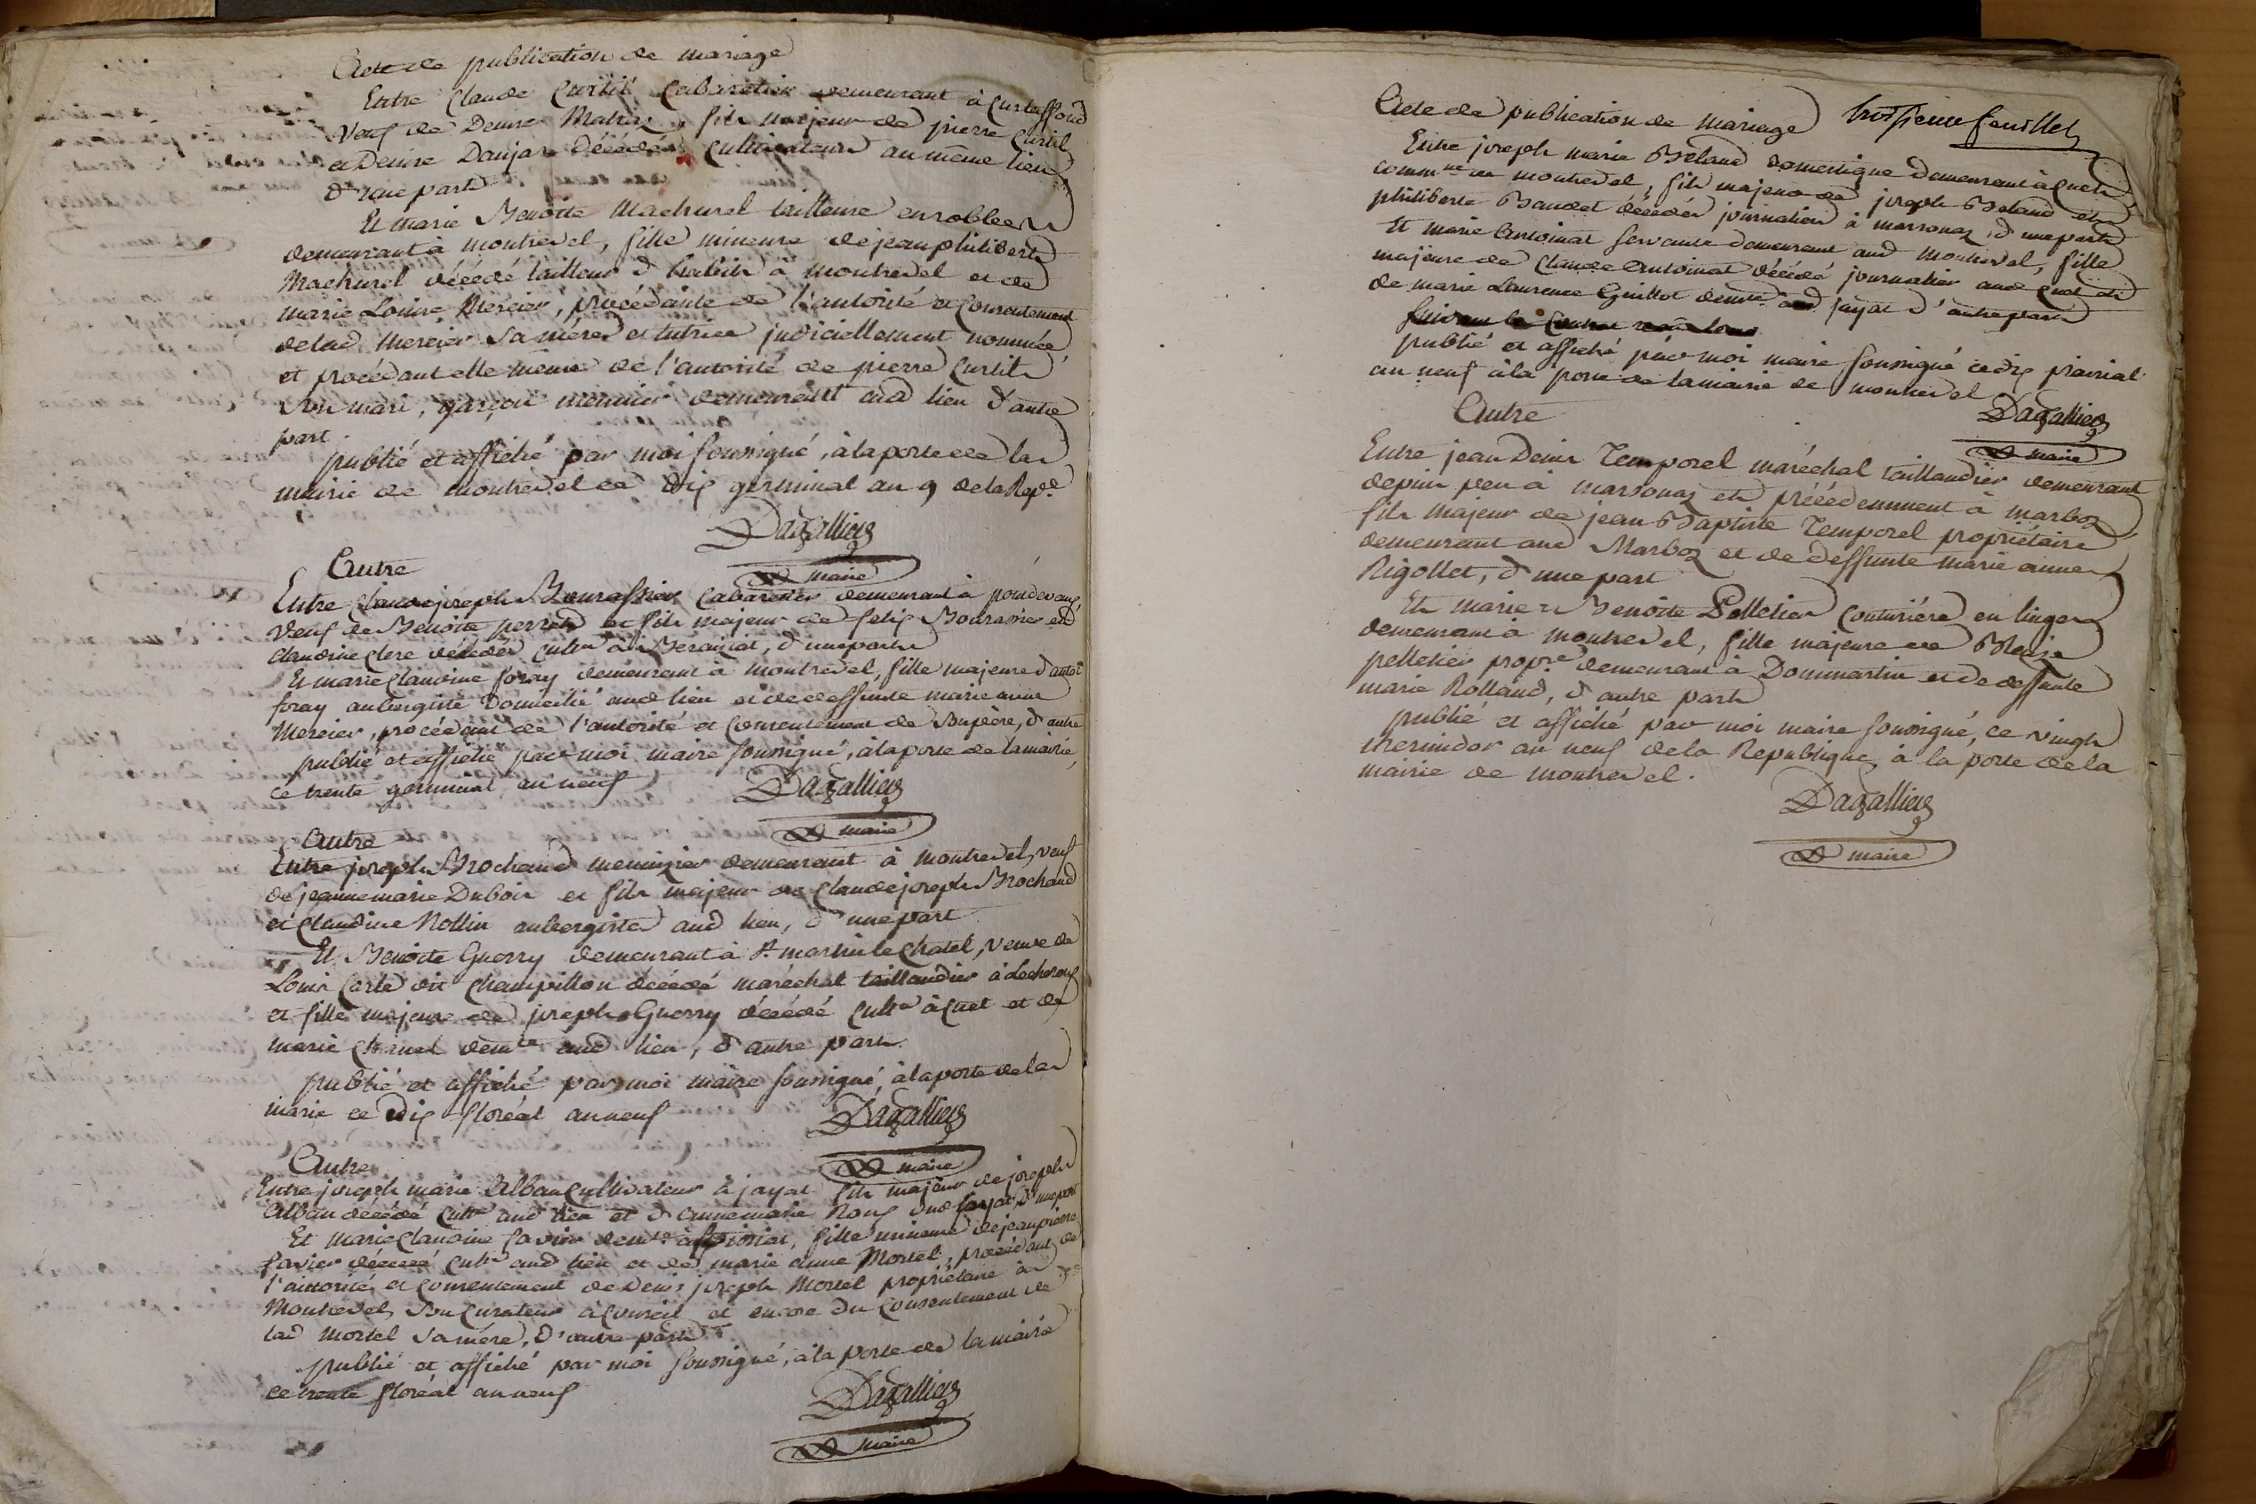 Acte de publication de mariage
Entre Claude Curtil Cabaretier demeurant à Curtaffond
veuf de Denise Mahaz, fils majeur de pierre Curtil
et Denise Danjan décédés cultivateurs au même lieu
d'une part
Et marie Benoite Machurel tailleuse en robbes
demeurant à montrevel, fille mineure de jean philibert
Machurel décédé tailleur d'habits à montrevel et de
marie Louise Mercier, procédante de l'autorité et Consentement
de lad. Mercier sa mère et tutrice judiciellement nommée
et procédant elle même de l'autorité de pierre Curtil
son mari, garçon meunier demeurant aud lieu d'autre
part
publié et affiché par moi soussigné, à la porte de la
mairie de montrevel ce dix germinal an 9 de la Repe.
Dagallier
maire
Autre
Entre Claude joseph Bourassier Cabaretier demeurant à pondevaux
veuf de Benoite perret et fils majeur de felix Bourassier et
claudine Clerc décédés cultrs à Bereiziat, d'une part
Et marie Claudine foray demeurant à montrevel, fille majeure d'antoi
foray aubergiste domicilié aud lieu et de deffunte marie anne
Mercier, procédant de l'autorité et Consentement de son père, d'autre
publié et affiché par moi maire soussigné, à la porte de la mairie,
ce trente germinal an neuf
Dagallier
maire
Autre
Entre joseph Brochand menuizier demeurant à montrevel, veuf
de jeanne marie Dubois et fils majeur de Claude joseph Brochand
et Claudine Rollin aubergiste aud lieu, d'une part
Et Benoite Guerry demeurant à St. martin le Chatel, veuve de
Louis Carle dit Champillon décédé maréchal taillandier à Lecheroux
et fille majeure de joseph Guerry décédé cultr à Cuet et de
marie demte aud lieu, d'autre part
publié et affiché par moi maire soussigné, à la porte de la
mairie ce dix floréal an neuf
Dagallier
maire
Autre
Entre joseph marie Alban Cultivateur à jayat fils majeur de joseph
Alban décédé cultr aud lieu et d'anne marie Roux dud jayat d'une part
Et marie Claudine favier demte à foissiat, fille mineure de jean pierre
favier décédé cultr aud lieu et de marie anne Mortel, procédant de
l'autorité et consentement de Denis joseph Mortel propriétaire à
Montrevel, son Curateur à Conseil et encore du Consentement de
lad Mortel sa mère, d'autre part
publié et affiché par moi soussigné, à la porte de la mairie
ce trente floréal an neuf
Dagallier
maire
Acte de publication de mariage troisieme feuillet
Entre joseph marie Beland domestique demeurant à Cuet
commne de montrevel, fils majeur de joseph Beland et
philiberte Baudet décédés journaliers à marsonaz, d'une part
Et marie Antoinat servante demeurant aud Montrevel, fille
majeure de Claude Antoinat décédé journalier aud Cuet et
de marie Laurence Guillot demte aud jayat d'autre part
publié et affiché par moi maire soussigné ce dix prairial
an neuf à la porte de la mairie de montrevel
Dagallier
maire
Autre
Entre jean Denis Temporel maréchal taillandier demeurant
depuis peu à marsonaz et précédemment à marboz
fils majeur de jean Baptiste Temporel propriétaire
demeurant aud Marboz et de deffunte marie anne
Rigollet, d'une part
Et marie Benoite Pelletier Couturière en linge
demeurant à montrevel, fille majeure de Blaise
pelletier propre demeurant à Dommartin et de deffunte
marie Rolland, d'autre part
publié et affiché par moi maire soussigné, ce vingt
thermidor an neuf de la Republique, à la porte de la
mairie de montrevel.
Dagallier
maire